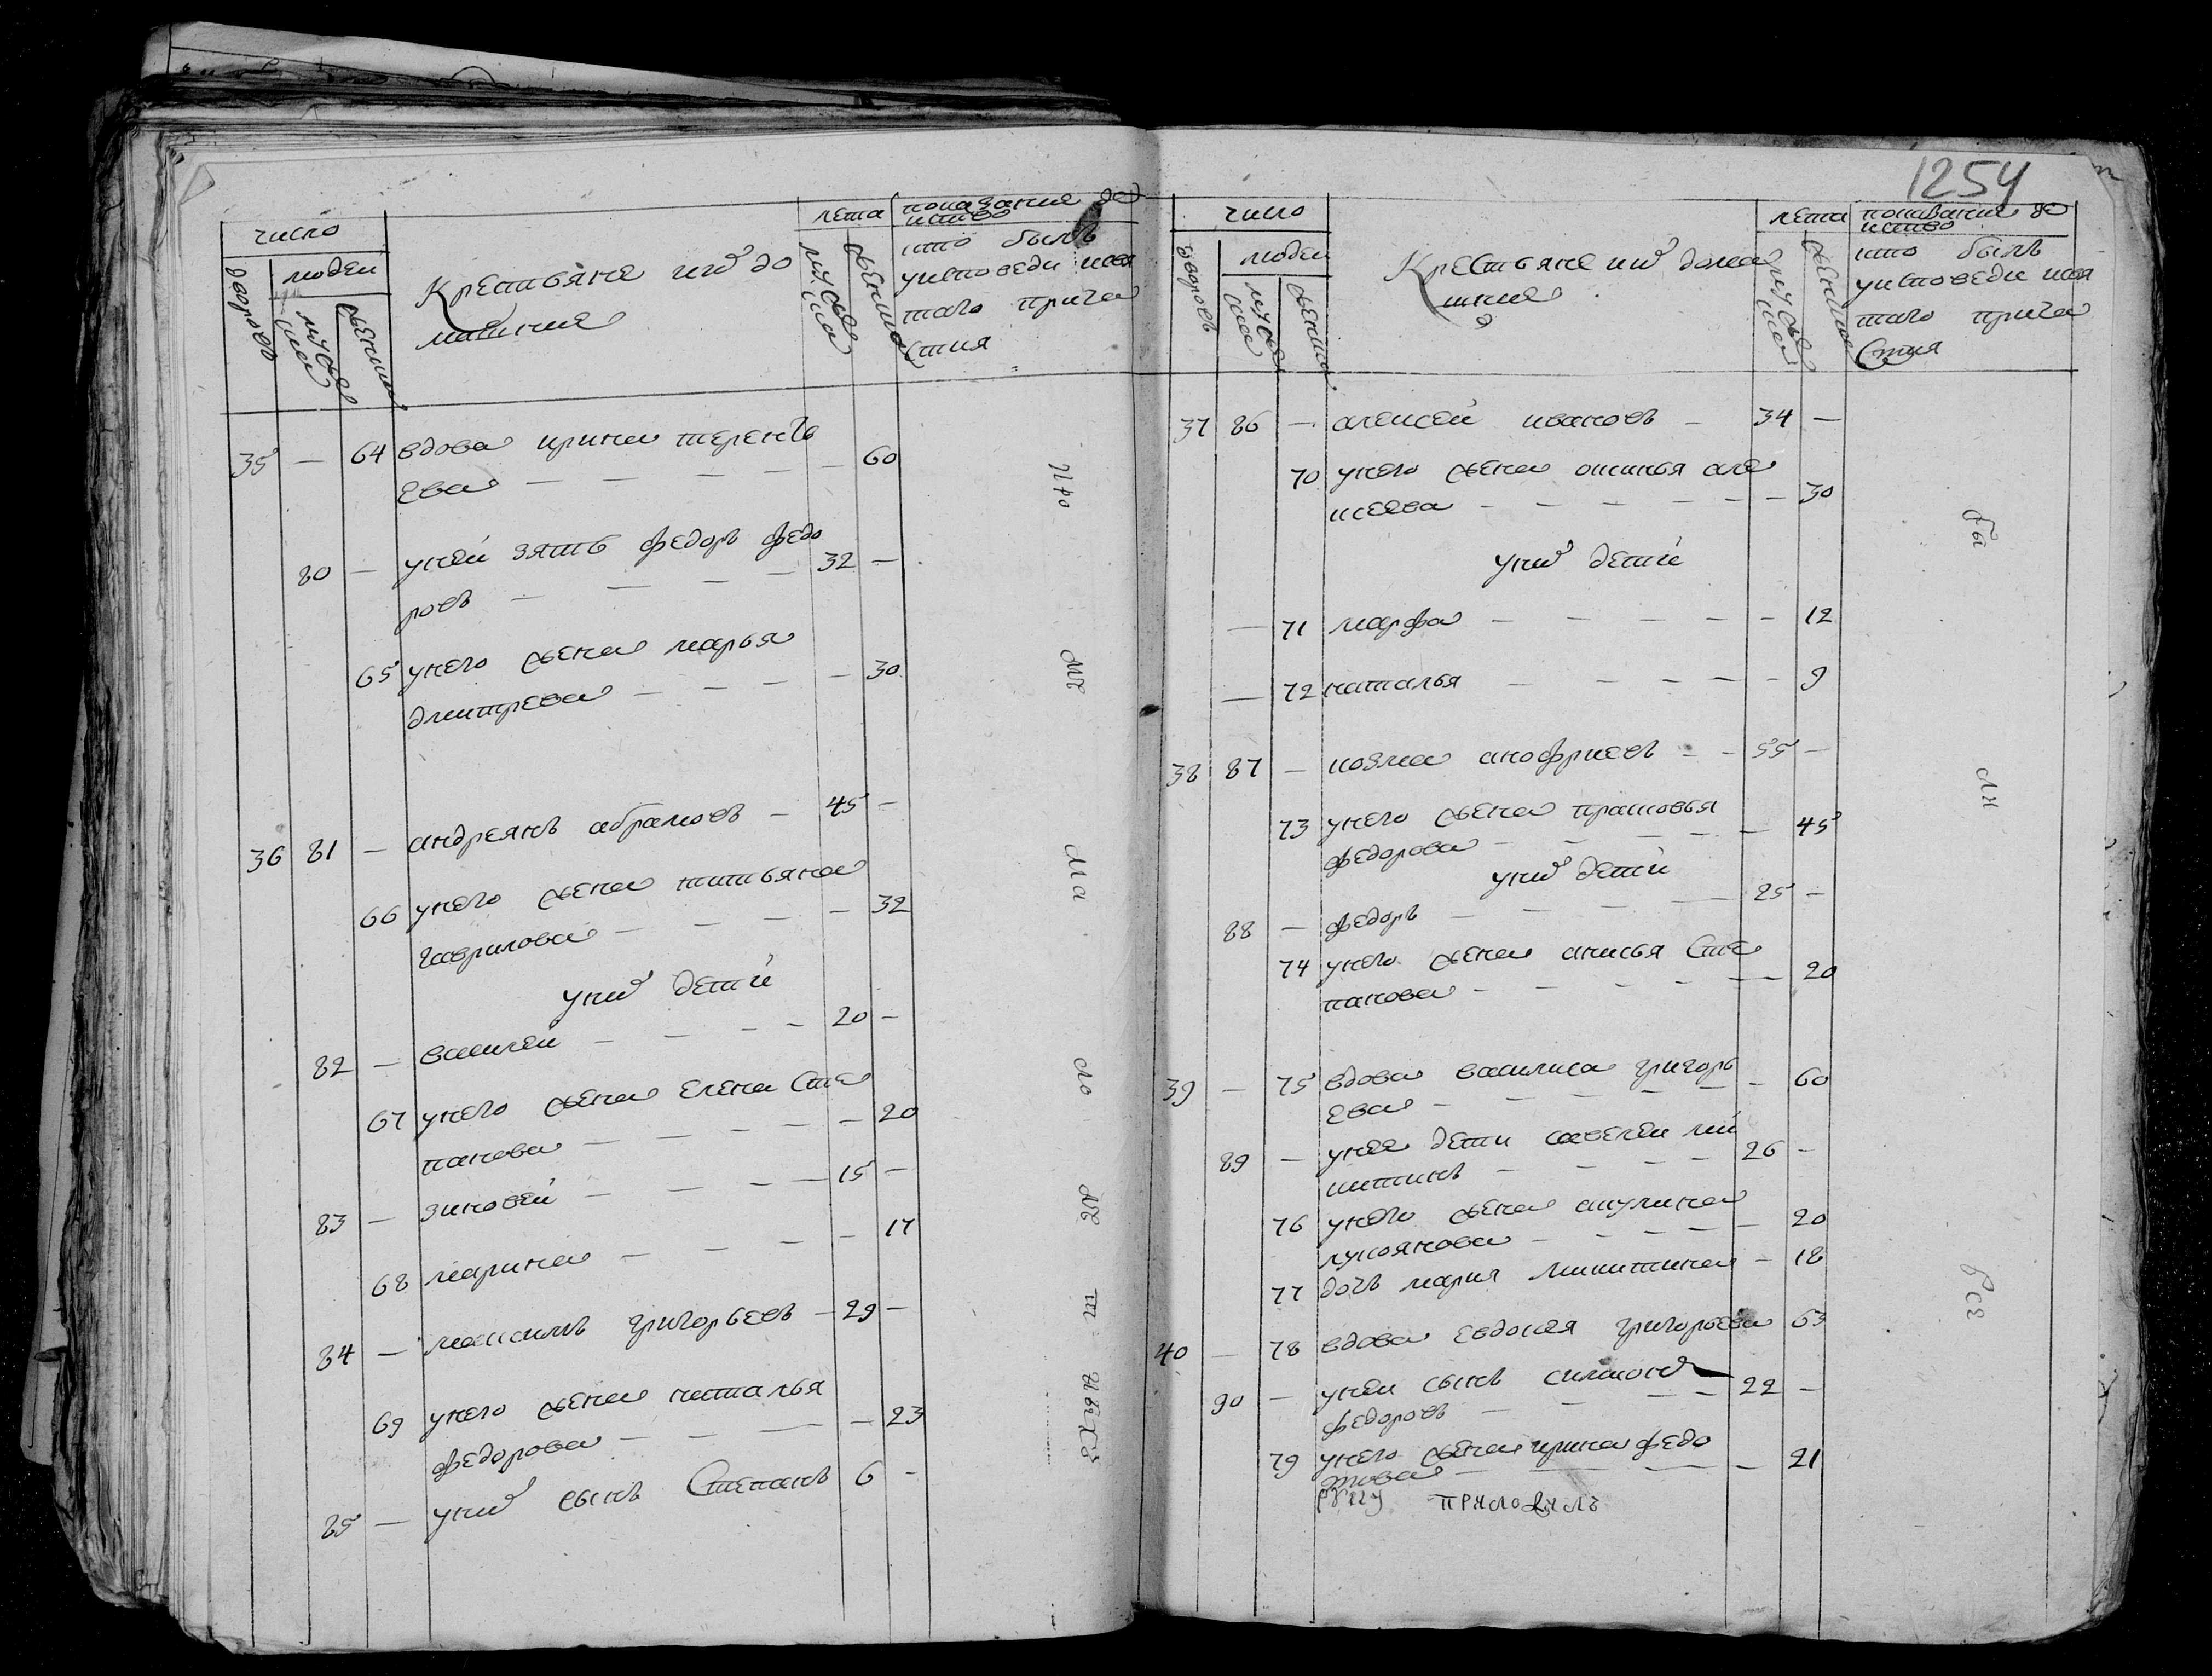 число
дворовъ
людеи
мужеска
женска
Крестьяне ихъ до
машние
лета
мужеска
женска
показание де
иство
кто былъ
уисповеди исвя
таго прича
стия
35 — 64 вдова ирина теренть
ева — — — — 60
80 — уней зять федоръ федо 32 —
ровъ — — — —
65 унего жена марья
дмитрева — — — — 30
36 81 — андреянъ абрамовъ — 45 —
66 унего жена татьяна
гаврилова — — — — 32
унихъ детй
82 — василеи — — — — 20 —
67 унего жена елена сте
панова — — — — — 20
83 — зиновей — — — — 15 —
68 марина — — — — — 17
84 — максимъ григорьевъ — 29 —
69 унего жена наталья
федорова — — — — 23
85 — унихъ сынъ Степанъ 6 —
про
мы
ма
ло
ле
т
ныхъ
1254
число
дворовъ
людеи
мужеска
женска
Крестьяне ихъ дома
шние
лета
мужеска
женска
показание де
иство
кто былъ
уисповеди исвя
таго прича
Стия
37 86 — алексей ивановъ — 34 —
70 унего жена
ксеева — — — — — — 30
унихъ детй
— 71 марфа — — — — — 12
— 72 наталья — — — — — 9
38 87 — козма анофриевъ — — 55 —
73 унего жена прасковья
федорова — — — — — 45
унихъ детй
88 — федоръ — — — — 25 —
74 унего жена анисья Сте
панова — — — — — — 20
39 — 75 вдова василиса григорь
ева — — — — — — 60
89 — унее дети савелеи ми
китинъ — — — — 26 —
76 унего жена акулина
лукоянова — — — — — 20
77 дочь мария микитина — 18
40 — 78 вдова евдокея григорьева 63
90 — унеи сынъ
федоровъ — — — — 22 —
79 унего жена ирина федо
това — — — — — 21
руку приложилъ
бы
ли
все